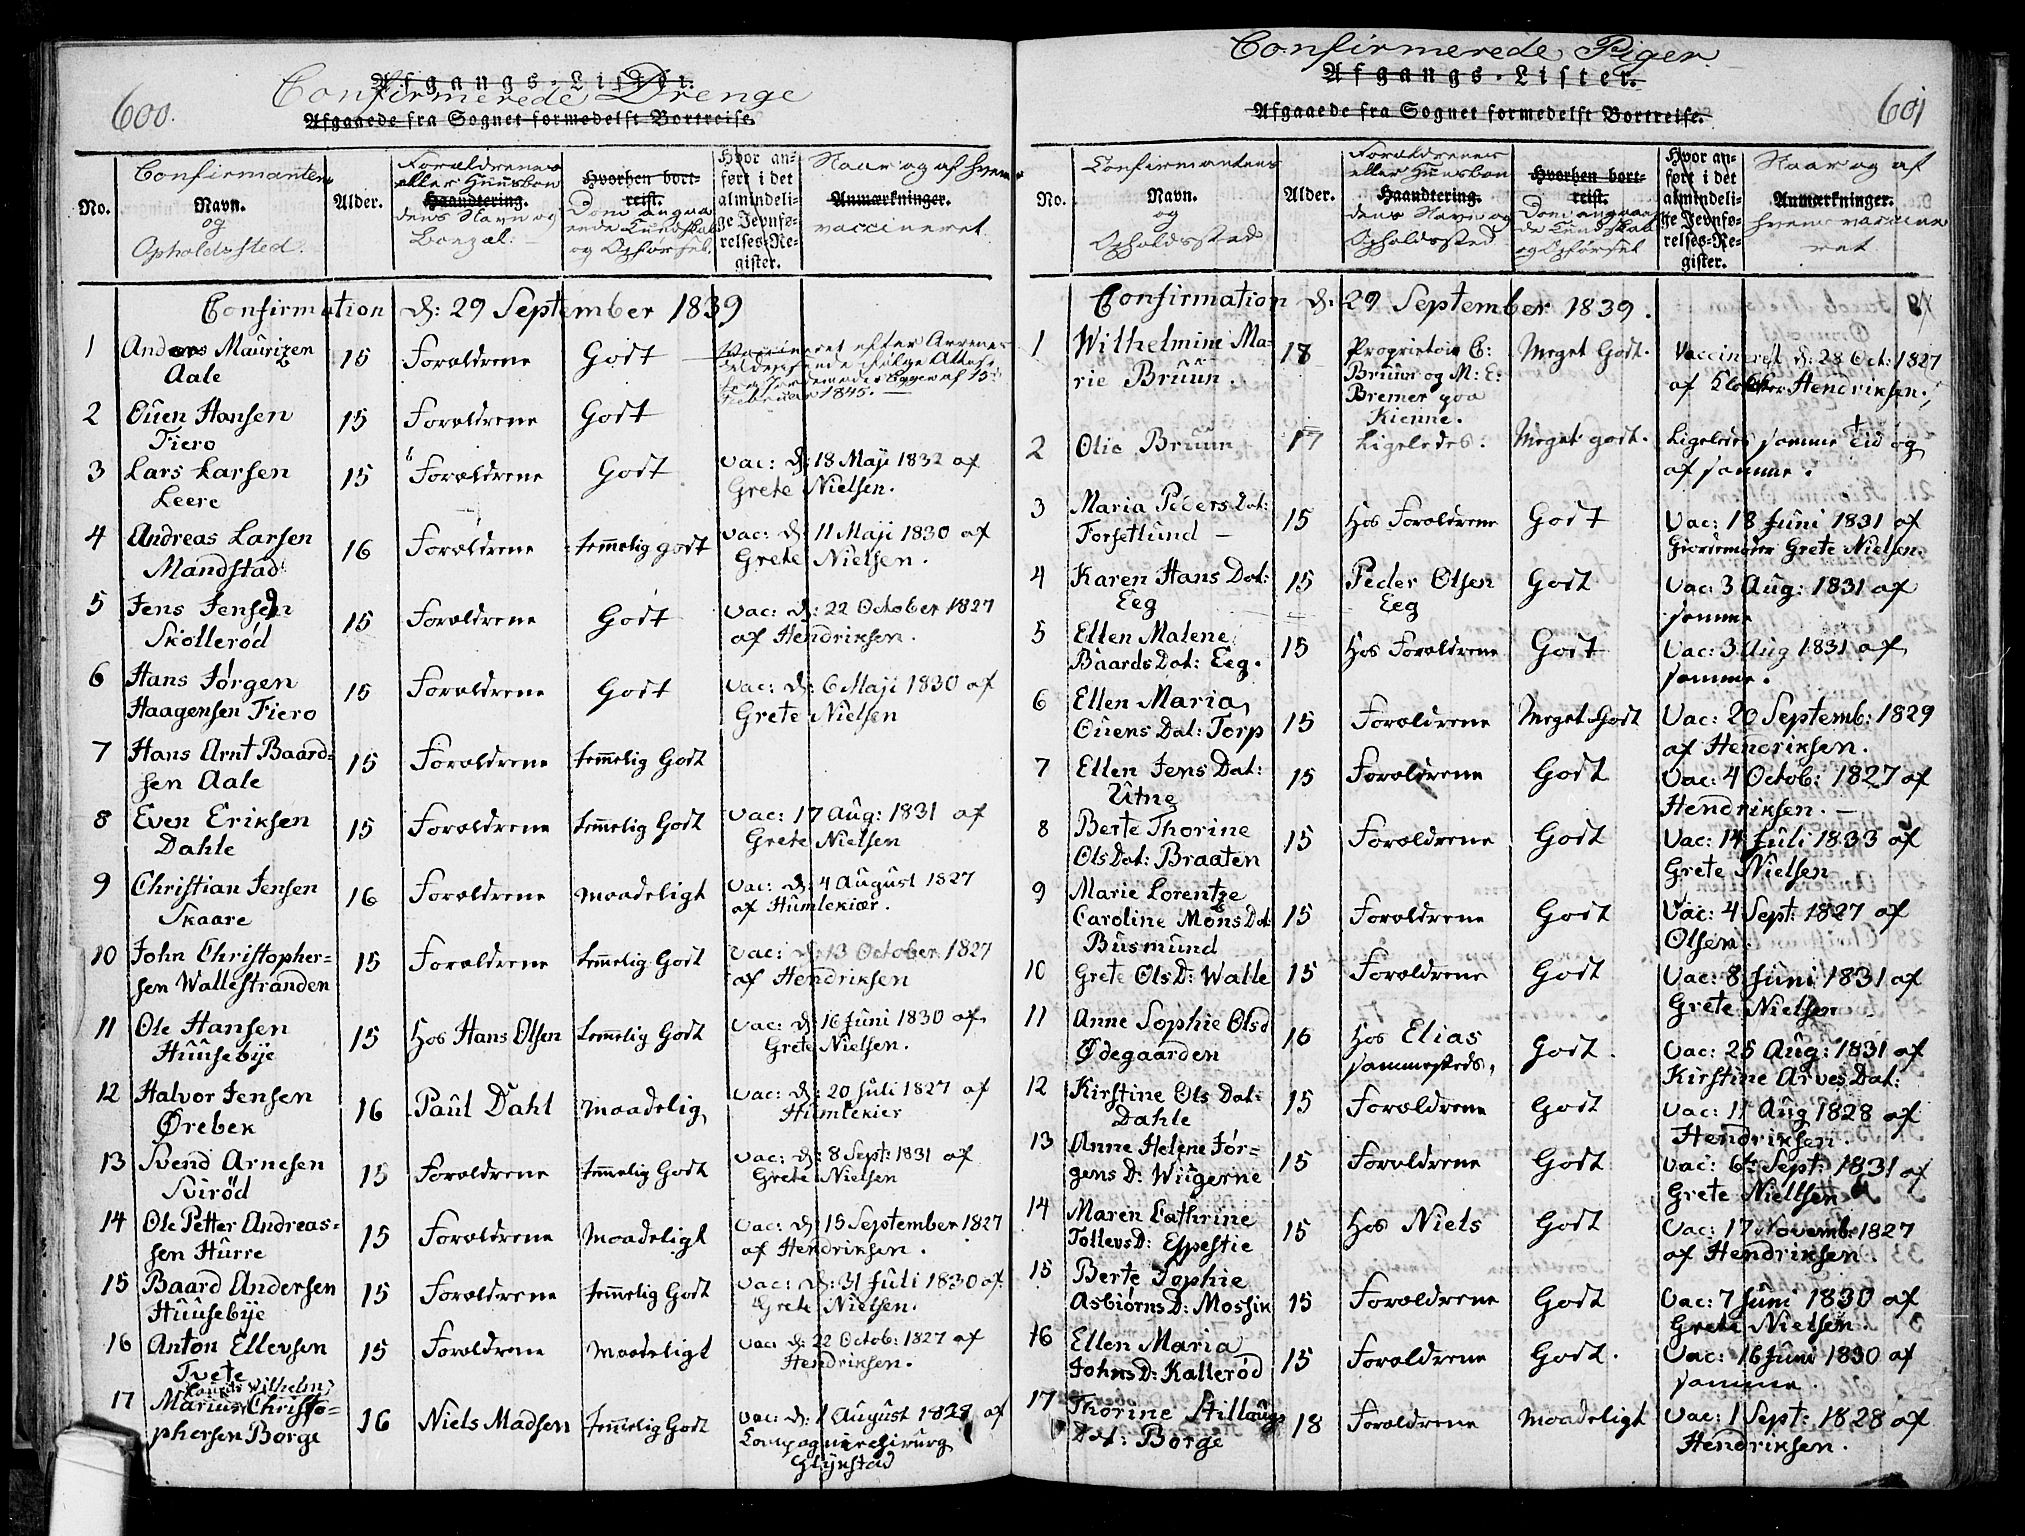 600.
Afgangs-Lister.
Confirmerede Drenge
Afgaaede fra Sognet formedelst Bortreise.
No.
Confirmantens
Navn.
og
Opholdssted.
Alder.
Forældrenes
eller Huusbon
Haandtering.
dens Navn og
Hvorhen bort-
reist.
Dom angaa
ende Kundskab
og Opførsel.
Hvor an-
ført i det
almindeli-
ge Jevnfø-
relses-Re-
gister.
Naar og af hvem
Anmærkninger.
vaccineret.
Confirmation d: 29 September 1839
1 Anders Maurizen Aale 15 Forældrene Godt Vaccineret efter Arrenes
Februar 1845. —
2 Ouen Hansen Fiero 15 Forældrene Godt
3 Lars Larsen Leere 15 Forældrene Godt Vac: d: 18 Maji 1832 af Grete Nielsen.
4 Andreas Larsen Mandstad 16 Forældrene temmelig godt Vac: d: 11 Maji 1830 af Grete Nielsen.
5 Jens Jensen Skollerød 15 Forældrene Godt Vac: d: 22 October 1827 af Hendriksen.
6 Hans Jørgen Haagensen Fiero 15 Forældrene Godt Vac: d: 6 Maji 1830 af Grete Nielsen
7 Hans Arnt Baard-sen Aale 15 Forældrene temmelig Godt
8 Even Eriksen Dahle 15 Forældrene temmelig Godt Vac: 17 Aug: 1831 af Grete Nielsen
9 Christian Jensen Skaare 16 Forældrene maadeligt Vac: d: 4 August 1827 af Humlekiær.
10 John Christopher-sen Wallestranden 15 Forældrene temmelig Godt Vac: d: 13 October 1827 af Hendriksen
11 Ole Hansen Huusebÿe 15 Hos Hans Olsen temmelig Godt Vac: d: 16 Juni 1830 af Grete Nielsen.
12 Halvor Jensen Ørebek 16 Paul Dahl maadelig Vac: d: 20 Juli 1827 af Humlekier
13 Svend Arnesen Svirød 15 Forældrene temmelig Godt Vac: d: 8 Sept: 1831 af Grete Nielsen
14 Ole Petter Andreas-sen Hurre 15 Forældrene maadeligt Vac: d: 15 September 1827 af Hendriksen.
15 Baard Andersen Huusebÿe 15 Forældrene temmelig Godt Vac: d: 31 Juli 1830 af Grete Nielsen.
16 Anton Ellevsen Tvete 15 Forældrene Maadeligt Vac: d: 22 Octob: 1827 af Hendriksen.
17 Laurits Wilhelm Marius Christo-phersen Borge 16 Niels Madsen temmelig Godt Vac: d: 1 August 1829 af Compagniechirurg Glÿkstad
601
Confirmerede Piger
Afgangs-Lister.
Afgaaede fra Sognet formedelst Bortreise.
No.
Confirmantens
Navn.
og
Opholdssted
Alder.
Forældrenes
eller Huusbon
Haandtering.
dens Navn og
Opholdssted
Hvorhen bort-
reist.
Dom angaaen
de Kundskab
og Opførsel
Hvor an-
ført i det
almindeli-
ge Jevnfø-
relses-Re-
gister.
Naar og af
Anmærkninger.
hvem vaccine
ret
Confirmation d: 29 September 1839.
1 Wilhelmine Ma-rie Bruun. 18 Proprietair C: Bruun og M: E: Bremer paa Kienne. Meget Godt. Vaccineret d: 28 Oct: 1827 af Klokker Hendriksen.
2 Olie Bruun 17 Ligeledes. Meget godt. Ligeledes samme Tid og af samme.
3 Maria Peders Dat: Forsetlund — 15 Hos Forældrene Godt Vac: 18 Juni 1831 af Giordemoder Grete Nielsen.
4 Karen Hans Dat: Eeg 15 Peder Olsen Eeg Godt Vac: 3 Aug: 1831 af samme
5 Ellen Malene Baards Dat: Eeg. 15 Hos Forældrene Godt Vac: 3 Aug 1831 af samme.
6 Ellen Maria Ouens Dat: Torp 15 Forældrene Meget Godt Vac: 20 Septemb: 1829 af Hendriksen.
7 Ellen Jens Dat: Utne 15 Forældrene Godt Vac: 4 Octob: 1827 af Hendriksen. —
8 Berte Thorine Ols Dat: Braaten 15 Forældrene Godt Vac: 14 Juli 1833 af Grete Nielsen
9 Marie Lorentze Caroline Mons Dat Busmund 15 Forældrene Godt Vac: 4 Sept: 1827 af Olsen.
10 Grete Ols D: Walle 15 Forældrene Godt Vac: 8 Juni 1831 af Grete Nielsen
11 Anne Sophie Olsd Ødegaarden 16 Hos Elias sammesteds, Godt. Vac: 25 Aug: 1831 af Kirstine Arves Dat:
12 Kirstine Ols Dat: Dahle 15 Forældrene Godt Vac: 11 Aug 1828 af Hendriksen.
13 Anne Helene Jør-gens D: Wiigerne 15 Forældrene Godt Vac: 6 Sept: 1831 af Grete Niellsen
14 Maren Cathrine Tollevs D: Eppestie 15 Hos Niels Godt Vac: 17 Novemb: 1827 af Hendriksen.
15 Berte Sophie Asbiørns D: Mossik 15 Forældrene Godt Vac: 7 Juni 1830 af Grete Nielsen.
16 Ellen Maria Johns D: Kallerød 15 Forældrene Godt. Vac: 16 Juni 1830 af samme.
17 Thorine Stillaugs Dat: Borge 18 Forældrene Maadeligt Vac: 1 Sept: 1828 af Hendriksen.